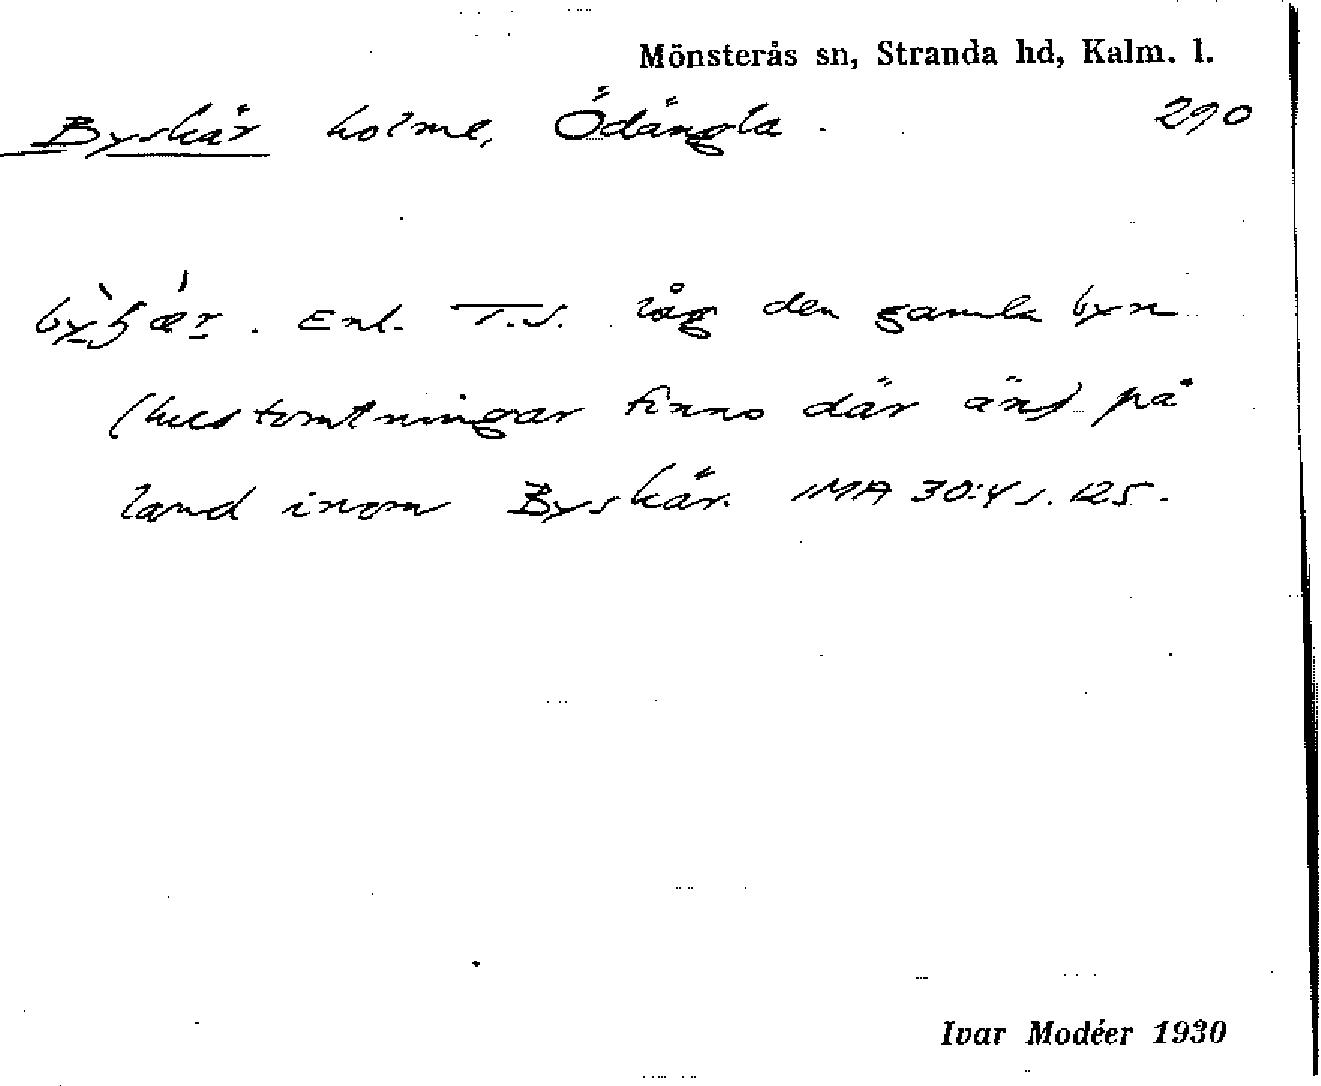 Mönsterås sn, Stranda hd, Kalm. l.
Byskär holme, Ödängla. 290
Enl. T.J. låg den gamla byn
(hustomtningar finns där än) på
land inom Byskär. IMA 30:4 s. 125.
Ivar Modéer 1930